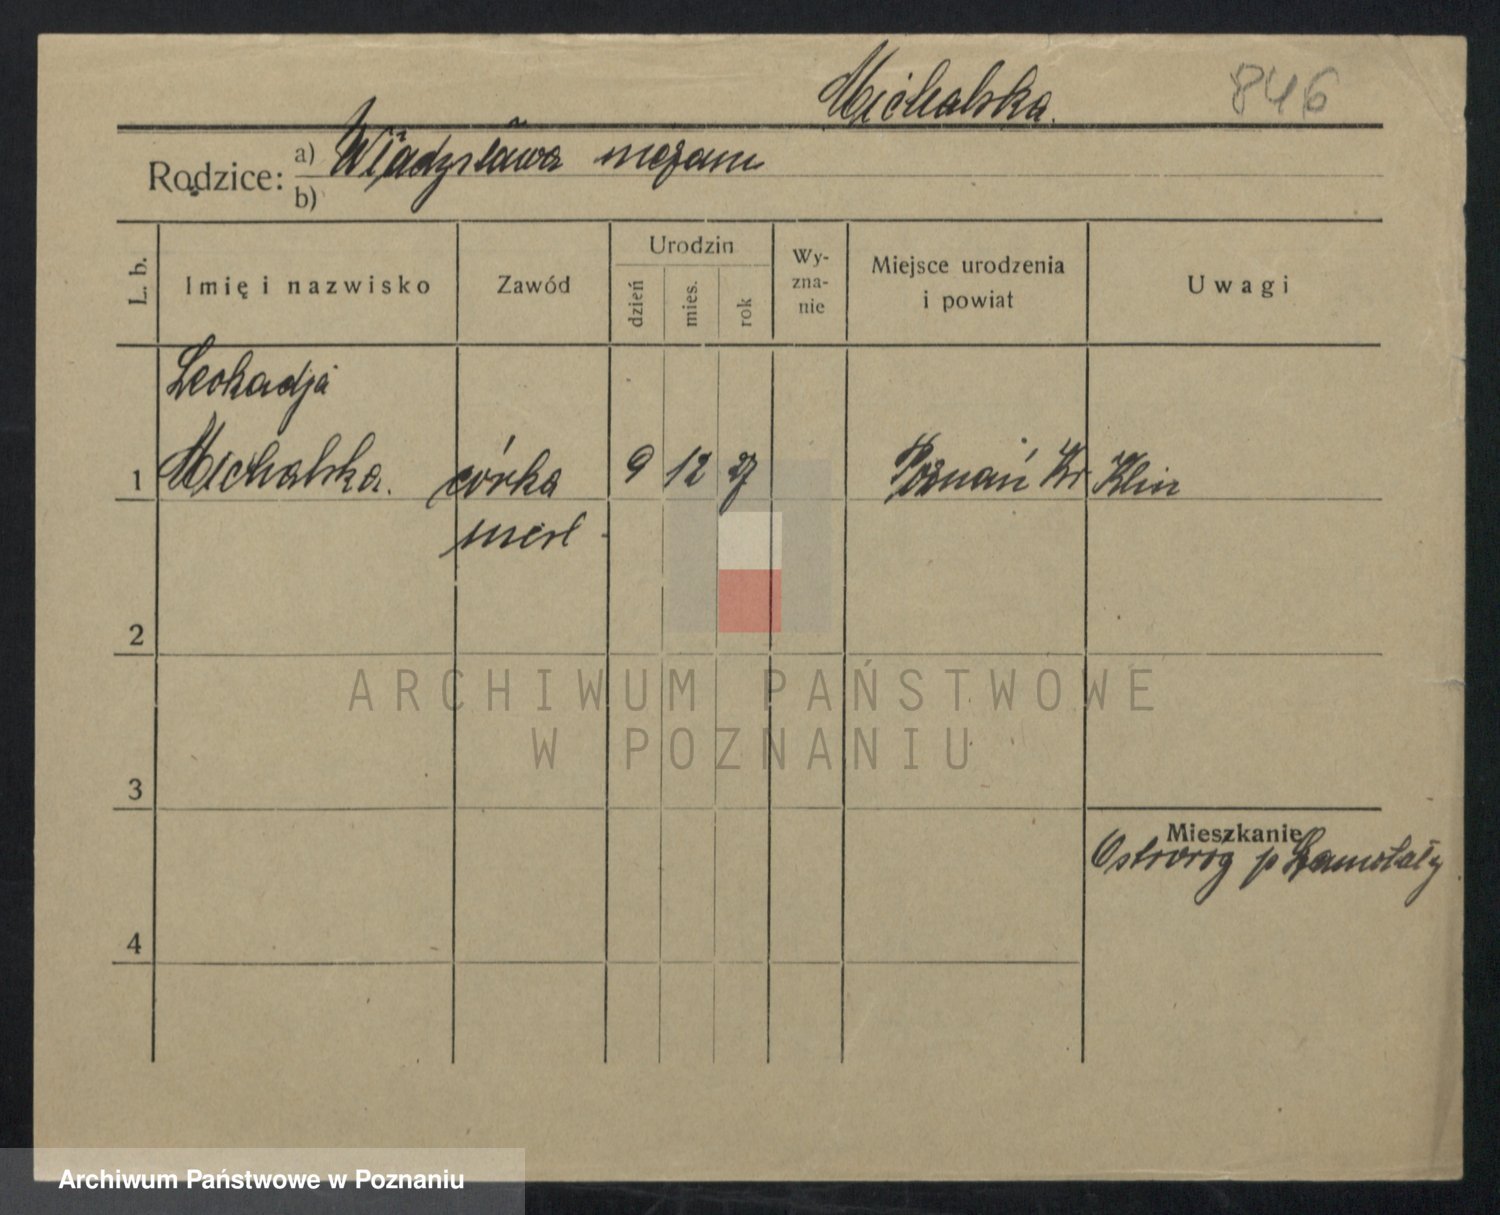 Michalska.
846
Rodzice: a) Władysława niezam
b)
L. b.
Imię i nazwisko
Zawód
Urodzin
dzień
mies.
rok
Wy-
zna-
nie
Miejsce urodzenia
i powiat
Uwagi
Leokadja
1 Michalska. córka 9 12 27 Poznań Kr Klin
nieśl
2
ARCHIWUM PAŃSTWOWE
W POZNANIU
3
Mieszkanie
Ostroróg p Szamotały
4
Archiwum Państwowe w Poznaniu